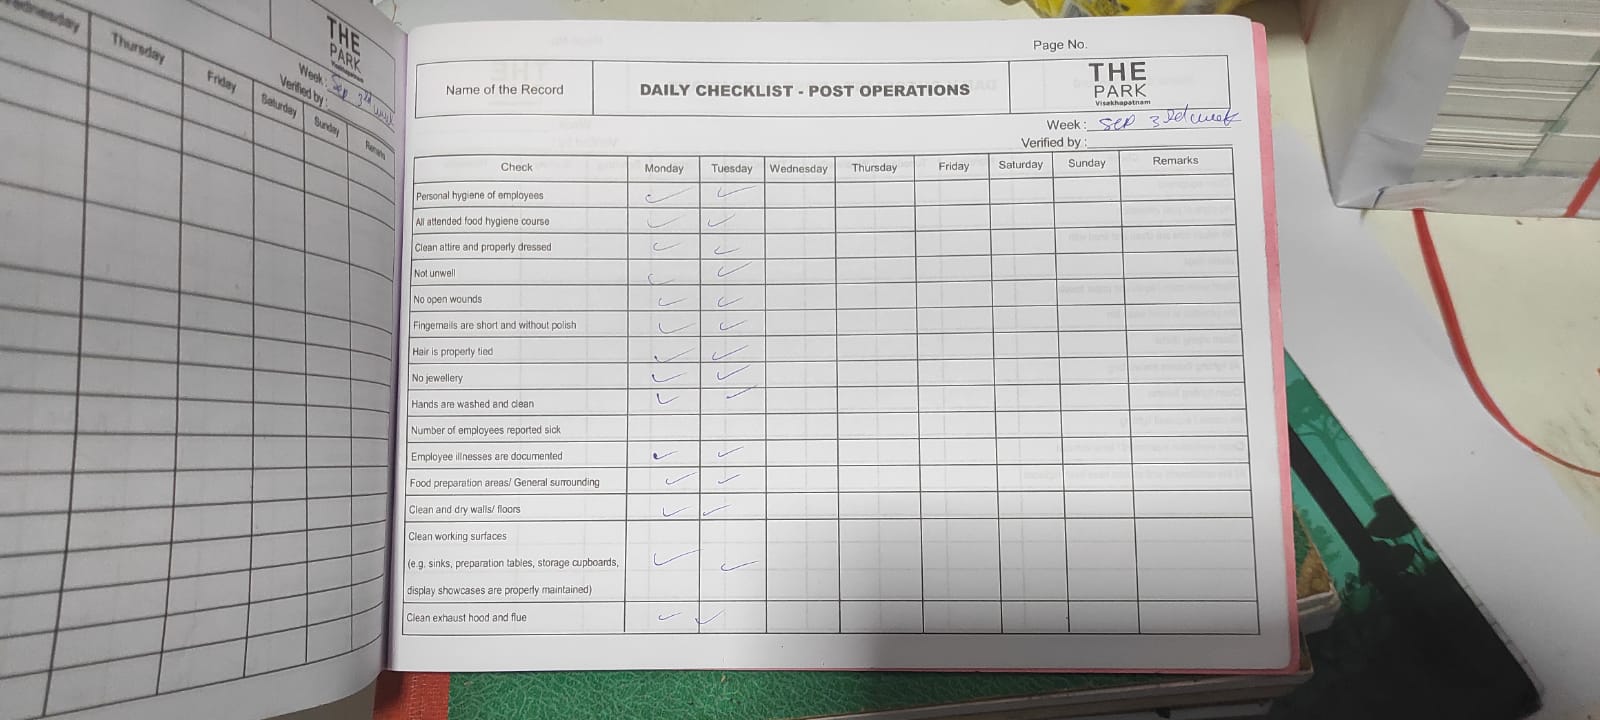 Wednesday Thursday Friday Saturday Sunday Remarks
THE
PARK
Visakhapatnam
Week: Sep 3rd week
Verified by:
Page No.
Name of the Record DAILY CHECKLIST - POST OPERATIONS THE
PARK
Visakhapatnam
Week: Sep 3rd week
Verified by:
Check Monday Tuesday Wednesday Thursday Friday Saturday Sunday Remarks
Personal hygiene of employees ✓ ✓
All attended food hygiene course ✓ ✓
Clean attire and properly dressed ✓ ✓
Not unwell ✓ ✓
No open wounds ✓ ✓
Fingernails are short and without polish ✓ ✓
Hair is properly tied ✓ ✓
No jewellery ✓ ✓
Hands are washed and clean ✓ ✓
Number of employees reported sick
Employee illnesses are documented ✓ ✓
Food preparation areas/ General surrounding ✓ ✓
Clean and dry walls/ floors ✓ ✓
Clean working surfaces
(e.g. sinks, preparation tables, storage cupboards, ✓ ✓
display showcases are properly maintained)
Clean exhaust hood and flue ✓ ✓